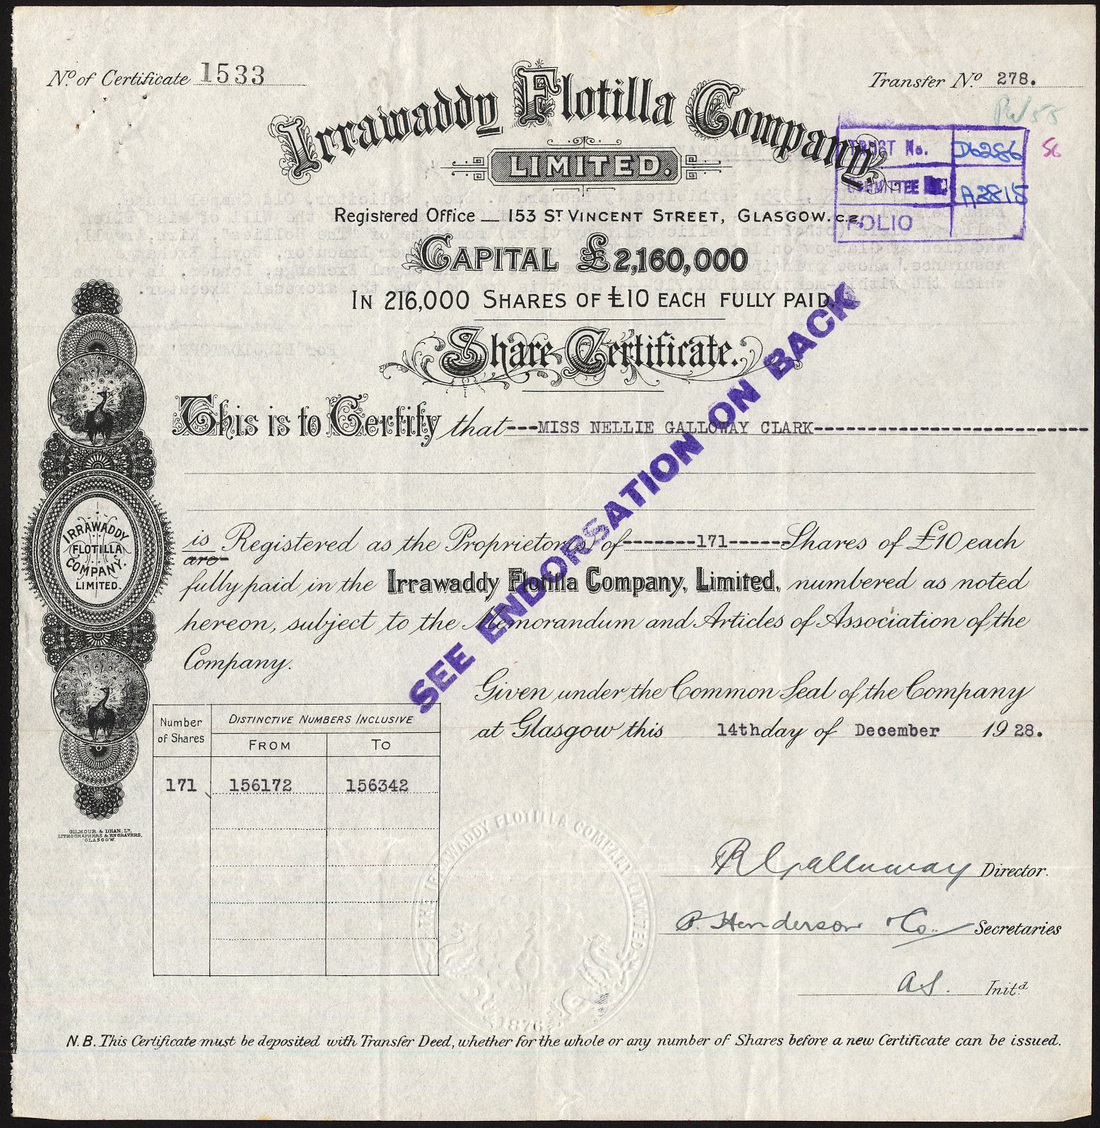 No. of Certificate 1533
Transfer No. 278.
Irrawaddy Flotilla Company
LIMITED.
TRUST No. D6286
A2815
FOLIO
Registered Office — 153 St Vincent Street, Glasgow. C.2.
CAPITAL £2,160,000
IN 216,000 SHARES OF £10 EACH FULLY PAID.
Share Certificate.
This is to Certify that---MISS NELLIE GALLOWAY CLARK---
is Registered as the Proprietors of-------171------Shares of £10 each
are
fully paid in the Irrawaddy Flotilla Company, Limited, numbered as noted
hereon, subject to the Memorandum and Articles of Association of the
Company.
SEE ENDORSATION ON BACK
IRRAWADDY
FLOTILLA
COMPANY.
LIMITED.
Given under the Common Seal of the Company
at Glasgow this 14th day of December 1928.
Number of Shares
DISTINCTIVE NUMBERS INCLUSIVE
FROM TO
171 156172 156342
GILMOUR & DEAN, LD.
LITHOGRAPHERS & ENGRAVERS,
GLASGOW.
THE IRRAWADDY FLOTILLA COMPANY LIMITED
1876
R Galloway Director.
P. Henderson & Co. Secretaries
A.S. Initd.
N.B. This Certificate must be deposited with Transfer Deed, whether for the whole or any number of Shares before a new Certificate can be issued.